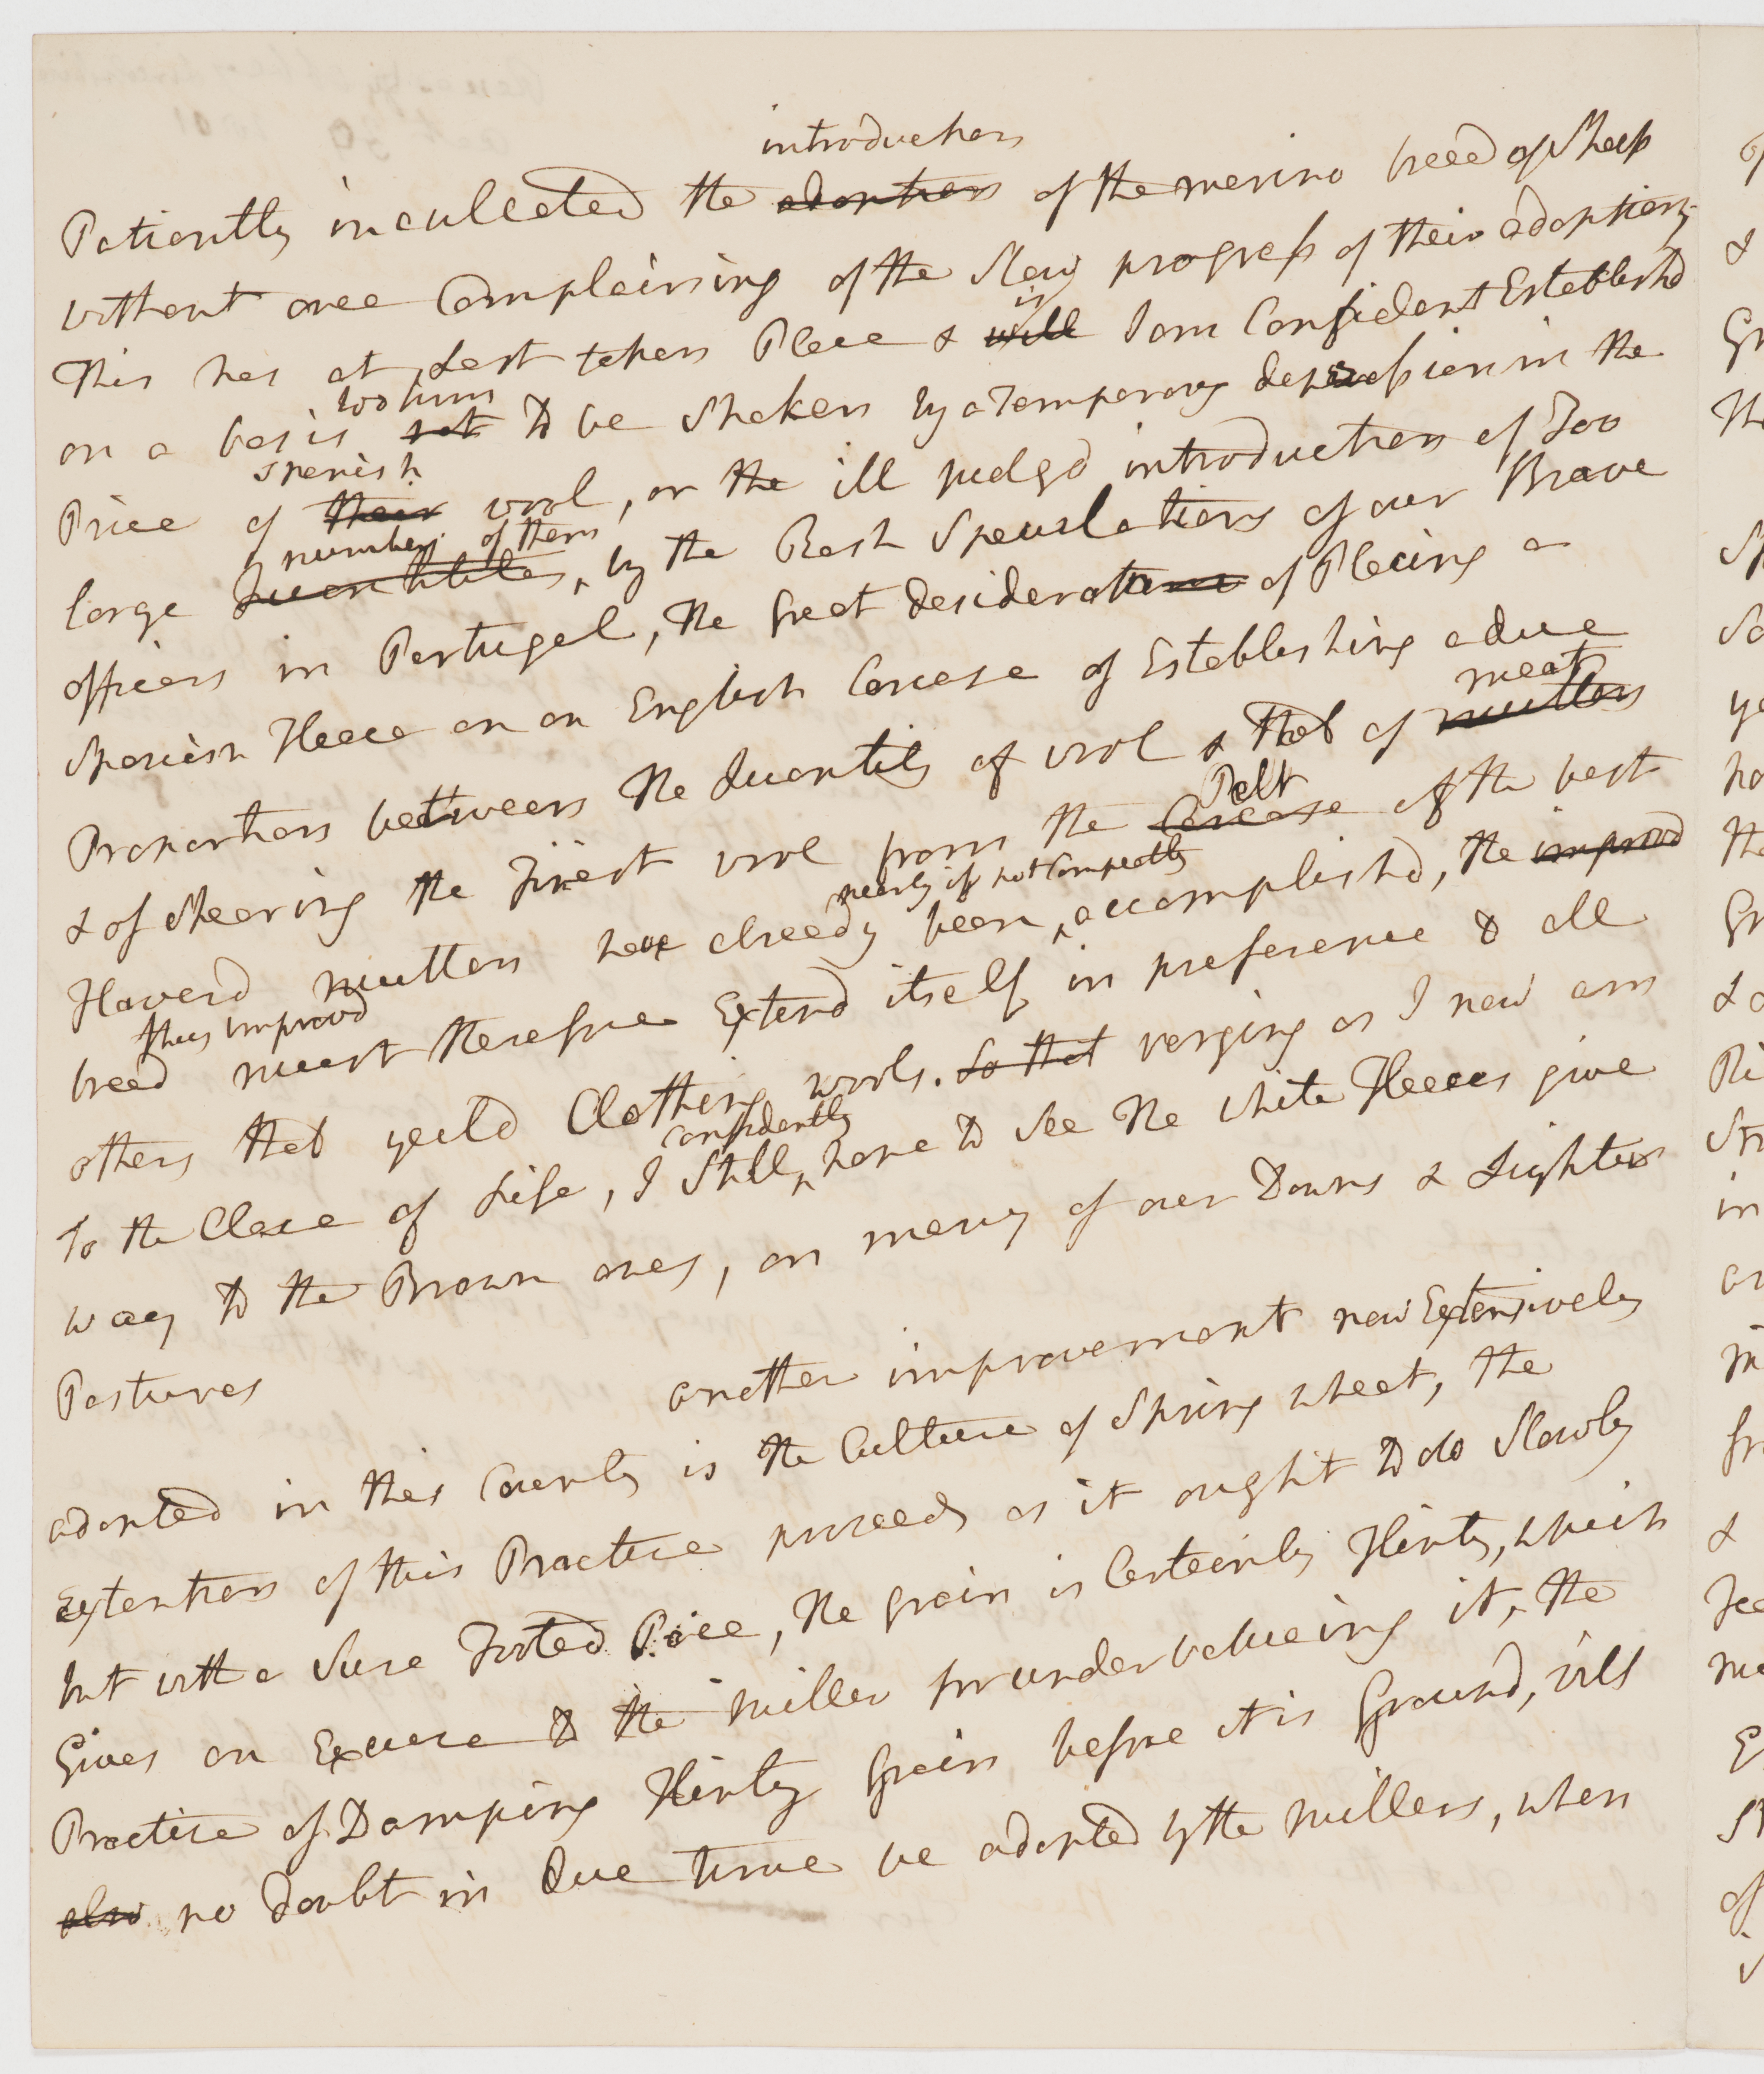 introduction
Patiently inculcated the adoption of the merino breed of Sheep
without once Complaining of the Slow progress of their adoption,
is
This has at Last taken Place & will I am Confident Establishd
too firm
on a basis not to be Shaken by a Temporary depression in the
Spanish
Price of their wool, or the ill judgd introduction of Too
numbers of them
large Quantities, by the Rash Speculations of our Brave
officers in Portugal, the great desideratum of Placing a
Spanish Fleece on an English Carcase of Establishing a due
meat
Proportion between the Quantity of wool & that of mutton
Pelt
& of Shearing the Finest wool from the Carcase of the best
nearly if not Compleatly
Flaverd mutton have already been accomplishd, the improvd
thus improvd
breed must therefore Extend itself in preference to all
others that yeild Clothing wools. So that verging as I now am
Confidently
To the Close of Life, I Still hope to See the white Fleeces give
way to the Brown ones, on many of our Downs & Lighter
Pastures
another improvement now Extensively
adopted in this County is the Culture of Spring wheat, the
Extention of this Practice proceeds as it ought to do Slowly
but with a Sure Footed Pace, the grain is Certainly Flinty, which
Gives an Excuse to the miller for undervalueing it, the
Practice of Damping Flinty Grain before it is Ground, will
also no doubt in due time be adopted by the millers, when